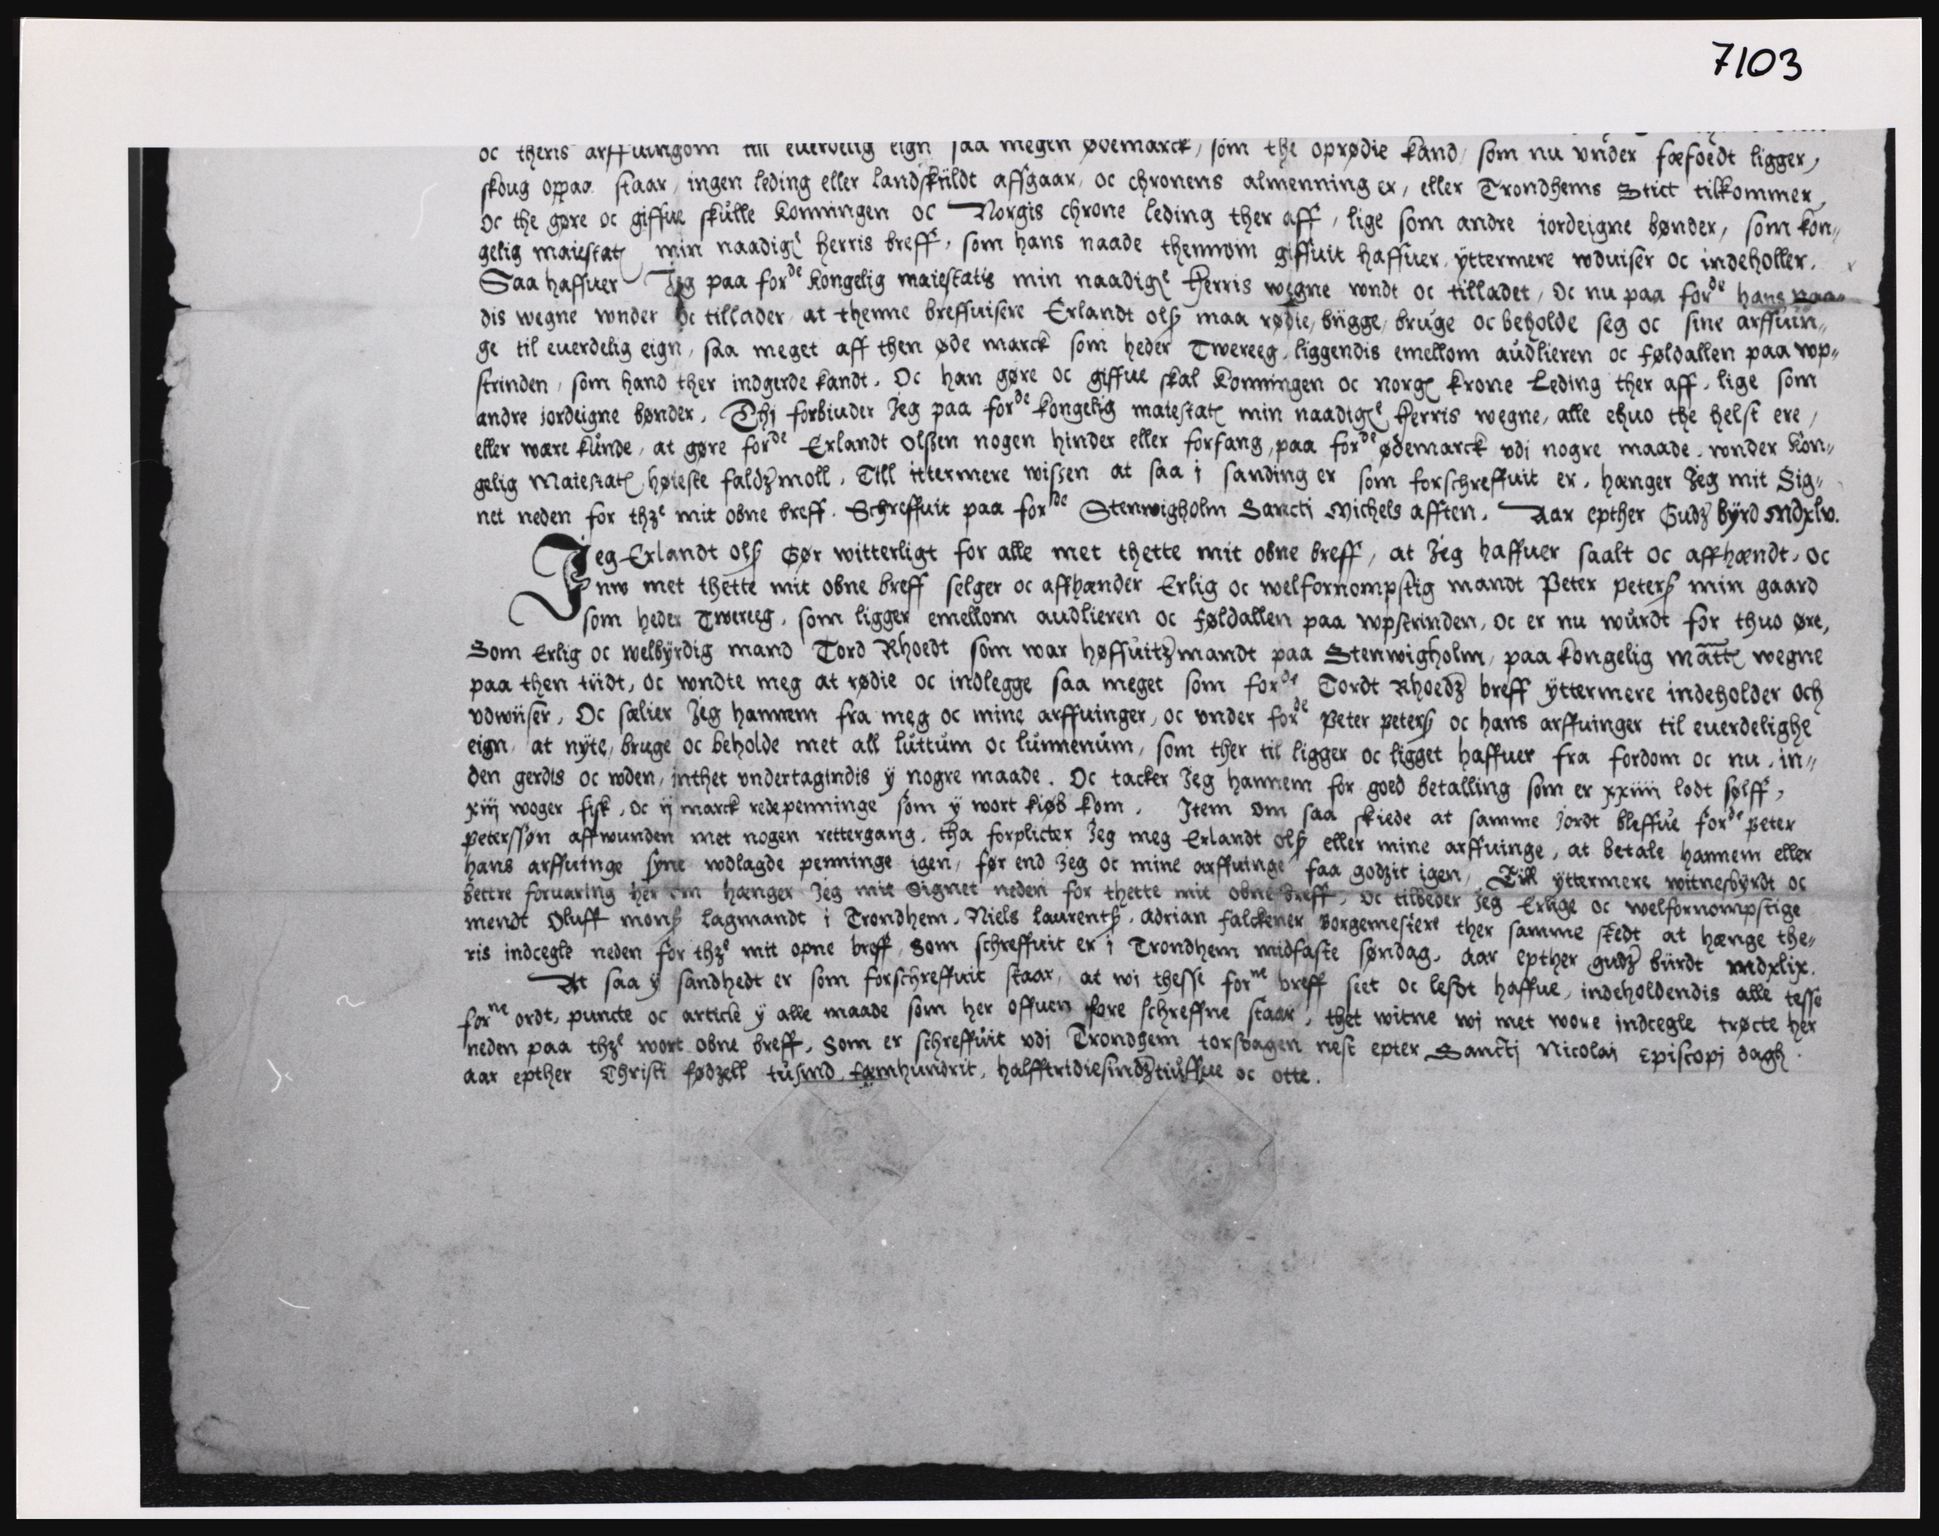 7103
oc theris arffuingom till euerdelig eign saa megen ødemarck, som the oprødie kand, som nu vnder fæfoedt ligger,
skoug oppaa staar, ingen leding eller landskiildt affgaar, oc chronens almenning er, eller Trondhems Stict tilkommer,
Oc the gøre oc giffue skulle Konningen oc Norgis chrone leding ther aff, lige som andre iordeigne bønder, som kon„
gelig maiestatz min naadige herris breff, som hans naade thennom giffuit haffuer, yttermere wduiser oc indeholler.
Saa haffuer Jeg paa forde kongelig maiestatis min naadige Herris wegne wndt oc tilladet, Oc nu paa forde hans naa„
dis wegne wnder oc tillader, at thenne breffuisere Erlandt olß maa rødie, bügge, bruge oc beholde seg oc sine arffuin„
ge til euerdelig eign, saa meget aff then øde marck som heder Twereeg, liggendis emellom audlieren oc føldallen paa wp„
strinden, som hand ther indgerde kandt. Oc han gøre oc giffue skal Konningen oc norgis krone Leding ther aff, lige som
andre jordeigne bønder. Thj forbiuder Jeg paa forde kongelig maiestatz min naadige Herris wegne, alle ehuo the helst ere,
eller wære kunde, at gøre forde Erlandt olßen nogen hinder eller forfang, paa forde ødemarck vdi nogre maade, wnder kon„
gelig Maiestatz høieste faldzmoll. Till ittermere wissen at saa i sanding er som forschreffuit er, hænger Jeg mit Sig„
net neden for thze mit obne breff. Schreffuit paa forde Stenwigholm Sancti Michels afften. Aar epther Gudz byrd mdxlv.
Jeg Erlandt olß Gør witterligt for alle met thette mit obne breff, at Jeg haffuer saalt oc affhændt, oc
nw met thette mit obne breff selger oc affhænder Erlig oc welfornompstig mandt Peter peterß min gaard
som heder Twereeg, som ligger emellom audlieren oc føldallen paa wpstrinden, oc er nu wurdt for thuo øre,
Som Erlig oc welbyrdig mand Tord Rhoedt som war høffuitzmandt paa Stenwigholm, paa kongelig mattz wegne
paa then tiidt, oc wndte meg at rødie oc indlegge saa meget som forde Tordt Rhoedz breff yttermere indeholder och
vdwiiser, Oc sælier Jeg hannem fra meg oc mine arffuinger, oc vnder forde Peter peterß oc hans arffuinger til euerdelighe
eign, at nyte, bruge oc beholde met all luttum oc lunnenum, som ther til ligger oc ligget haffuer fra fordom oc nu, in„
den gerdis oc wden, inthet vndertagindis y nogre maade. Oc tacker Jeg hannem for goed betalling som er xxiiii lodt sølff,
xiij woger fisk, oc ij marck redepenninge som y wort kiøb kom. Item om saa skiede at samme jordt bleffue forde peter
peterssøn affwunden met nogen rettergang, tha forplicter Jeg meg Erlandt olß eller mine arffuinge, at betale hannem eller
hans arffuinge syne wdlagde penninge igen, før end Jeg oc mine arffuinge faa godzit igen, Till yttermere witnesbyrdt oc
bettre foruaring her om hænger Jeg mit Signet neden for thette mit obne breff, oc tilbeder Jeg Erlige oc welfornompstige
mendt Oluff monß lagmandt i Trondhem, Niels laurentß, adrian falckener Borgemestere ther samme stedt at hænge the„
ris indcegle neden for thze mit opne breff, Som schreffuit er i Trondhem midfaste søndag, aar epther gudz büirdt mdxlix.
At saa y sandhedt er som forschreffuit staar, at wi thesse forne breff seet oc lesdt haffue, indeholdendis alle tesse
forne ordt, puncte oc article y alle maade som her offuen fore schreffne staar, thet witne wj met wore indcegle trøcte her
neden paa thze wort obne breff, Som er schreffuit vdi Trondhem torsdagen nest epter Sanctj Nicolaj Episcopj dagh.
aar epther Christi fødzell tusind, fæmhundrit, halfftridiesindztiuffue oc otte.